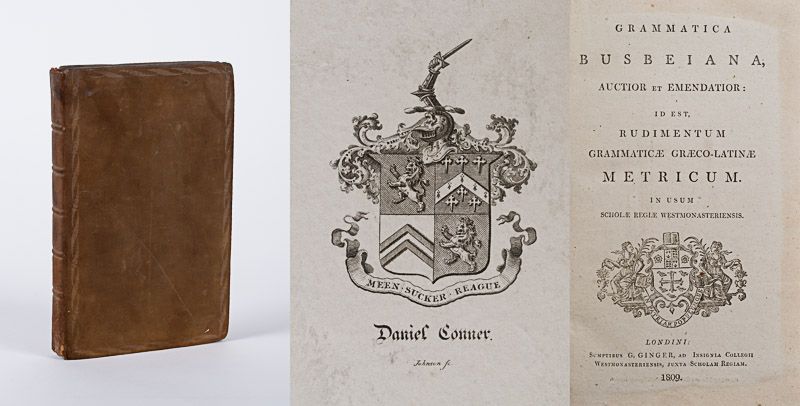 MEEN·SUCKER·REAGUE
Daniel Conner.
Johnson fc.
GRAMMATICA
BUSBEIANA,
AUCTIOR ET EMENDATIOR:
ID EST,
RUDIMENTUM
GRAMMATICÆ GRÆCO-LATINÆ
METRICUM.
IN USUM
SCHOLÆ REGIÆ WESTMONASTERIENSIS.
LONDINI:
SUMPTIBUS G. GINGER, AD INSIGNIA COLLEGII
WESTMONASTERIENSIS, JUXTA SCHOLAM REGIAM.
1809.